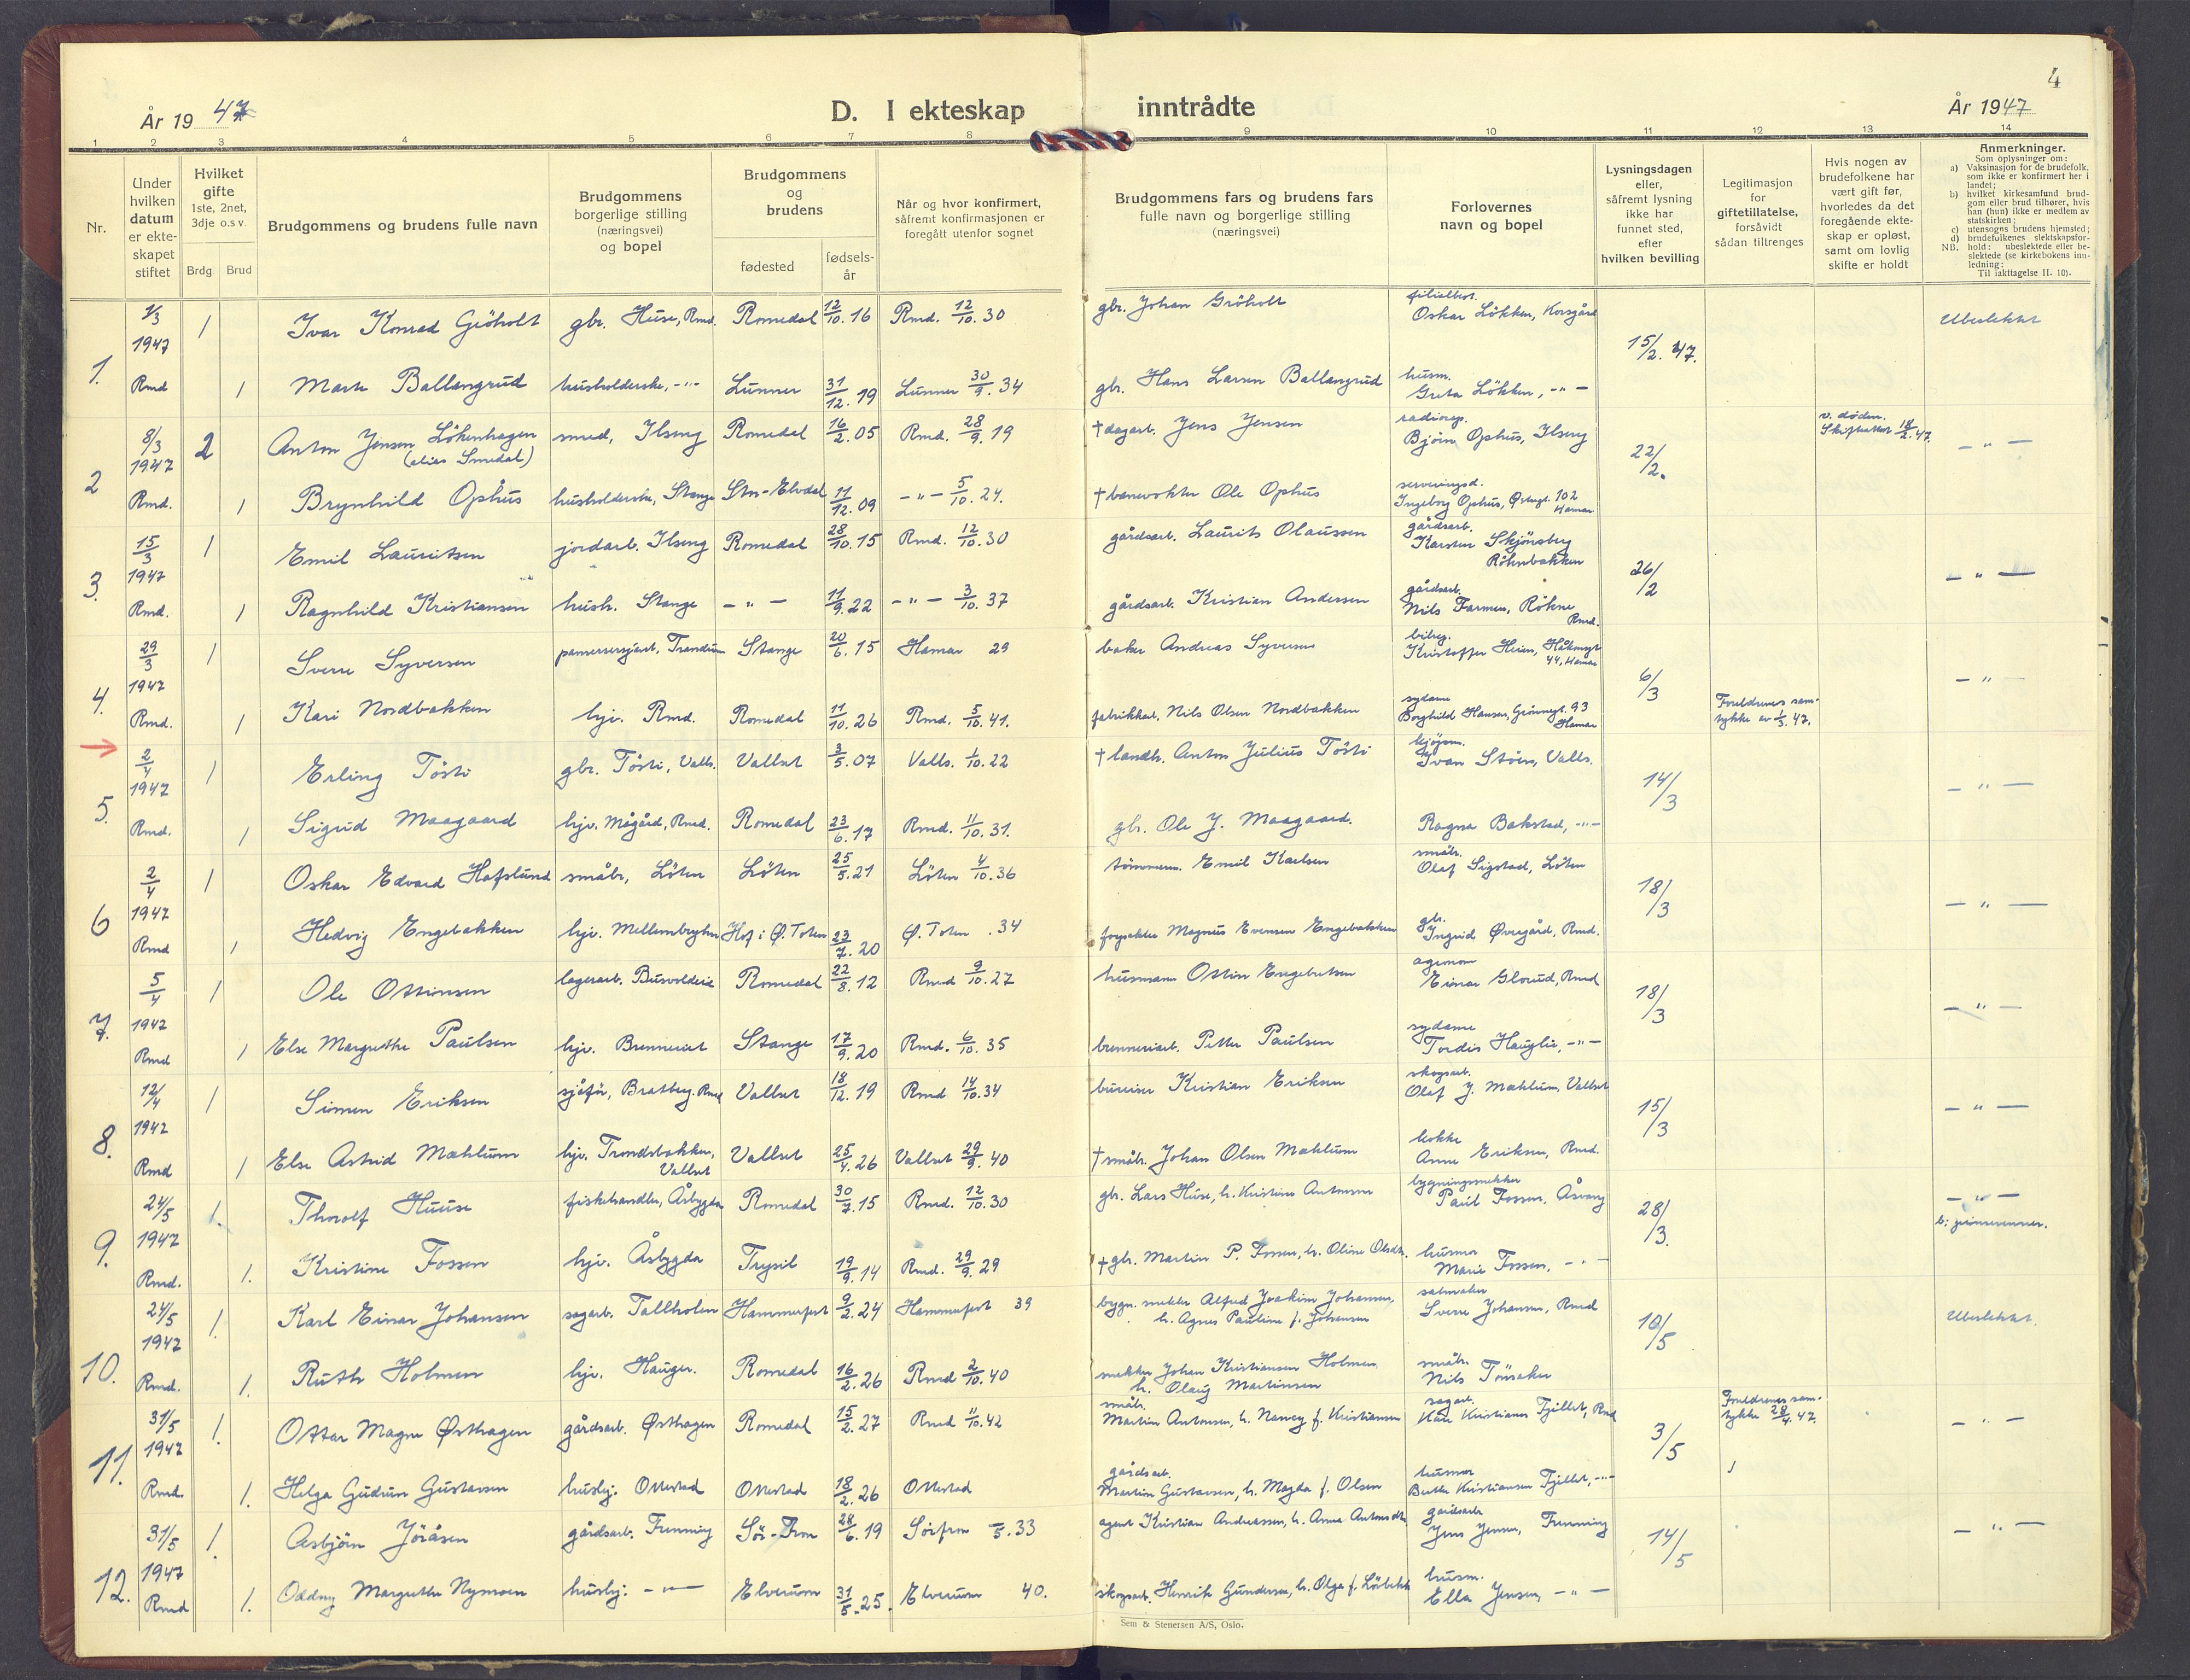 4
År 1947
D. I ekteskap inntrådte
År 1947
1 2 3 4 5 6 7 8 9 10 11 12 13 14
Nr.
Under hvilken datum er ekteskapet stiftet
Hvilket gifte 1ste, 2net, 3dje o.s v.
Brdg Brud
Brudgommens og brudens fulle navn
Brudgommens borgerlige stilling (næringsvei) og bopel
Brudgommens og brudens
fødested
fødselsår
Når og hvor konfirmert, såfremt konfirmasjonen er foregått utenfor sognet
Brudgommens fars og brudens fars fulle navn og borgerlige stilling (næringsvei)
Forlovernes navn og bopel
Lysningsdagen eller, såfremt lysning ikke har funnet sted, efter hvilken bevilling
Legitimasjon for giftetillatelse, forsåvidt sådan tiltrenges
Hvis nogen av brudefolkene har vært gift før, hvorledes da det foregående ekteskap er opløst, samt om lovlig skifte er holdt
Anmerkninger.
Som oplysninger om:
a) Vaksinasjon for de brudefolk, som ikke er konfirmert her i landet;
b) hvilket kirkesamfund brudgom eller brud tilhører, hvis han (hun) ikke er medlem av statskirken;
c) utensogns brudens hjemsted;
d) brudefolkenes slektskapsforhold: ubeslektede eller beslektede (se kirkebokens innledning:
NB.
Til iakttagelse II. 10).
1. 1/3 1947 Rmd 1 Ivar Konrad Gröholt gbr. Huse, Rmd. Romedal 12/10. 16 Rmd. 12/10. 30 gbr. Johan Gröholt filialbest. Oskar Løkken, Korsgård 15/2. 47. Ubeslektet
1 Marte Ballangrud husholderske, -"- Lunner 31/12. 19 Lunner 30/9. 34 gbr. Hans Larsen Ballangrud husm. Greta Løkken, -"-
2 8/3 1947 Rmd. 2 Anton Jensen Løkenhagen (alias Smedal) smed, Ilseng Romedal 16/2. 05 Rmd. 28/9. 19 † dagarb. Jens Jensen radiorep. Bjørn Ophus, Ilseng 22/2. v. døden. Skifteattest 18/2. 47. -"-
1 Brynhild Ophus husholderske, Stange Stor-Elvdal 11/12. 09 -"- 5/10. 24. † banevokter Ole Ophus serveringsd. Ingeborg Ophus, Østregt. 102 Hamar
3. 15/3 1947 Rmd. 1 Emil Lauritsen jordarb. Ilseng Romedal 28/10. 15 Rmd. 12/10. 30 gårdsarb. Laurits Olaussen gårdsarb. Karsten Skjønsberg Röhnebakken 26/2 -"-
1 Ragnhild Kristiansen hush. Stange -"- 11/9. 22 -"- 3/10. 37 gårdsarb. Kristian Andersen gårdsarb. Nils Farmen, Röhne Rmd.
4. 29/3 1947 Rmd. 1 Sverre Syversen pansersersjant, Trandum Stange 20/6. 15 Hamar 29 baker Andreas Syversen bileg. Kristoffer Heien, Håkonsgt. 44, Hamar 6/3 -"-
1 Kari Nordbakken hjv. Rmd. Romedal 11/10. 26 Rmd. 5/10. 41. fabrikkarb. Nils Olsen Nordbakken sydame Borghild Hansen, Grönnegt. 93 Hamar Foreldrenes samtykke av 1/3. 47.
5. 2/4 1947 Rmd. 1 Erling Tösti gbr. Tösti, Valls. Vallset 3/5. 07 Valls. 1/10. 22 † landh. Anton Julius Tösti kjøpm. Ivan Stöen, Valls. 14/3 -"-
1 Sigrid Maagaard hjv. Mågård, Rmd. Romedal 23/6. 17 Rmd. 11/10. 31. gbr. Ole J. Maagaard. Ragna Bakstad, -"-
6 2/4 1947 Rmd 1 Oskar Edvard Hafslund småbr, Löten Löten 25/5. 21 Löten 4/10. 36 tömmerm. Emil Karlsen småbr. Olaf Sigstad, Löten 18/3 -"-
1 Hedvig Engebakken hjv. Mellembryhn Hof i Ø. Toten 23/7. 20 Ø. Toten . 34 forpakter Magnus Evensen Engebakken gbr. Ingrid Øvregård, Rmd.
7. 5/4 1947 Rmd 1 Ole Ottinsen lagerarb. Busvolderie Romedal 22/8. 12 Rmd 9/10. 27 husmann Ottin Engebretsen agronom Einar Glorud, Rmd 18/3 -"-
1 Else Margrethe Paulsen hjv. Brenneriet Stange 17/9. 20 Rmd. 6/10. 35 brenneriarb. Petter Paulsen sydame Tordis Hauglie, -"-
8. 12/4 1947 Rmd 1 Simen Eriksen sjåfør, Bratberg. Rmd Vallset 18/12. 19 Rmd 14/10. 34 bureiser Kristian Eriksen skogsarb. Olaf J. Mæhlum, Vallset 15/3 -"-
1 Else Astrid Mæhlum hjv. Trondsbakken, Vallset Vallset 25/4. 26 Vallset 29/9. 40 † småbr. Johan Olsen Mæhlum kokke Anne Eriksen, Rmd.
9. 24/5 1947 Rmd. 1. Thorolf Huuse fiskehandler, Åsbygda Romedal 30/7. 15 Rmd. 12/10. 30 gbr. Lars Huse, h. Kristine Antonsen bygningssnekker Paul Fossen, Åsvang 28/3. -"- b: pinsevenner.
1. Kristine Fossen hjv. Åsbygda Trysil 19/9. 14 Rmd. 29/9. 29 † gbr. Martin P. Fossen, h. Oline Olsdtr. husmor Marie Fossen, -"-
10. 24/5 1947 Rmd. 1. Karl Einar Johansen sagarb. Tallholen Hammerfest 9/2. 24 Hammerfest 39 bygn. snekker Alfred Joakim Johansen, h. Agnes Pauline f. Johansen salmaker Sverre Johansen, Rmd 10/5 Ubeslektet.
1. Ruth Holmen hjv. Hauger. Romedal 16/2. 26 Rmd 2/10. 40 snekker Johan Kristiansen Holmen h. Olaug Martinsen småbr. Nils Tönsaker
11. 31/5 1947 Rmd. 1. Ottar Magne Østhagen gårdsarb. Østhagen Romedal 15/2. 27 Rmd 11/10. 42 småbr. Martin Antonsen, h. Nancy f. Kristiansen sagarb. Kåre Kristiansen Fjellet, Rmd 3/5 Foreldrenes samtykke 28/4. 47. -"-
1. Helga Gudrun Gustavsen hushj. Ottestad Ottestad 18/2. 26 Ottestad gårdsarb. Martin Gustavsen, h. Magda f. Olsen husmor Berthe Kristiansen Fjellet, -"-
12. 31/5 1947 Rmd 1. Asbjörn Jöråsen gårdsarb. Frenning Sör-Fron 28/6. 19 Sörfron -/5. 33 agent Kristian Andreassen, h. Anna Antonsdtr. gårdsarb Jens Jensen, Frenning 14/5 -"-
1. Oddny Margrethe Nymoen hushj: -"- Elverum 31/5. 25. Elverum 40. skogsarb. Henrik Gundersen, h. Olga f. Löbekk husm. Ella Jensen, -"-
Sem & Stenersen A/S, Oslo.